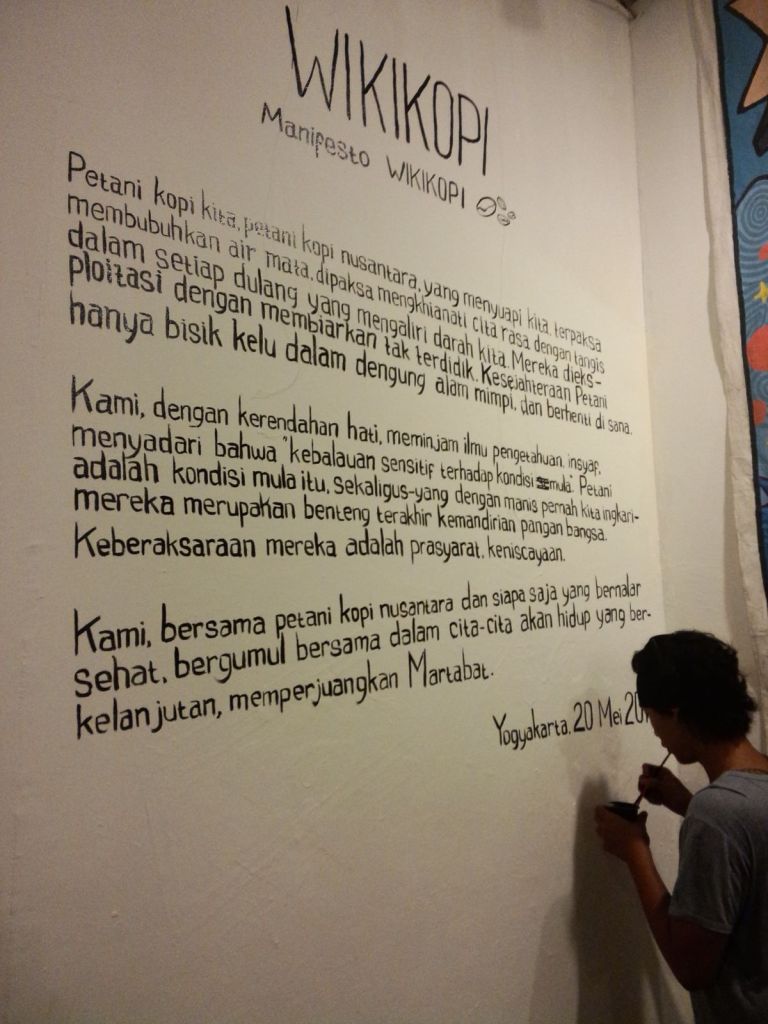 WIKIKOPI
Manifesto WIKIKOPI
Petani kopi kita, petani kopi nusantara, yang menyuapi kita, terpaksa
membubuhkan air mata, dipaksa mengkhianati cita rasa dengan tangis
dalam setiap dulang yang mengaliri darah kita. Mereka dieks-
ploitasi dengan membiarkan tak terdidik. Kesejahteraan Petani
hanya bisik kelu dalam dengung alam mimpi, dan berhenti di sana.
Kami, dengan kerendahan hati, meminjam ilmu pengetahuan, insyaf,
menyadari bahwa "kebalauan sensitif terhadap kondisi semula". Petani
adalah kondisi mula itu, sekaligus-yang dengan manis pernah kita ingkari-
mereka merupakan benteng terakhir kemandirian pangan bangsa.
Keberaksaraan mereka adalah prasyarat, keniscayaan.
Kami, bersama petani kopi nusantara dan siapa saja yang bernalar
sehat, bergumul bersama dalam cita-cita akan hidup yang ber-
kelanjutan, memperjuangkan Martabat.
Yogyakarta, 20 Mei